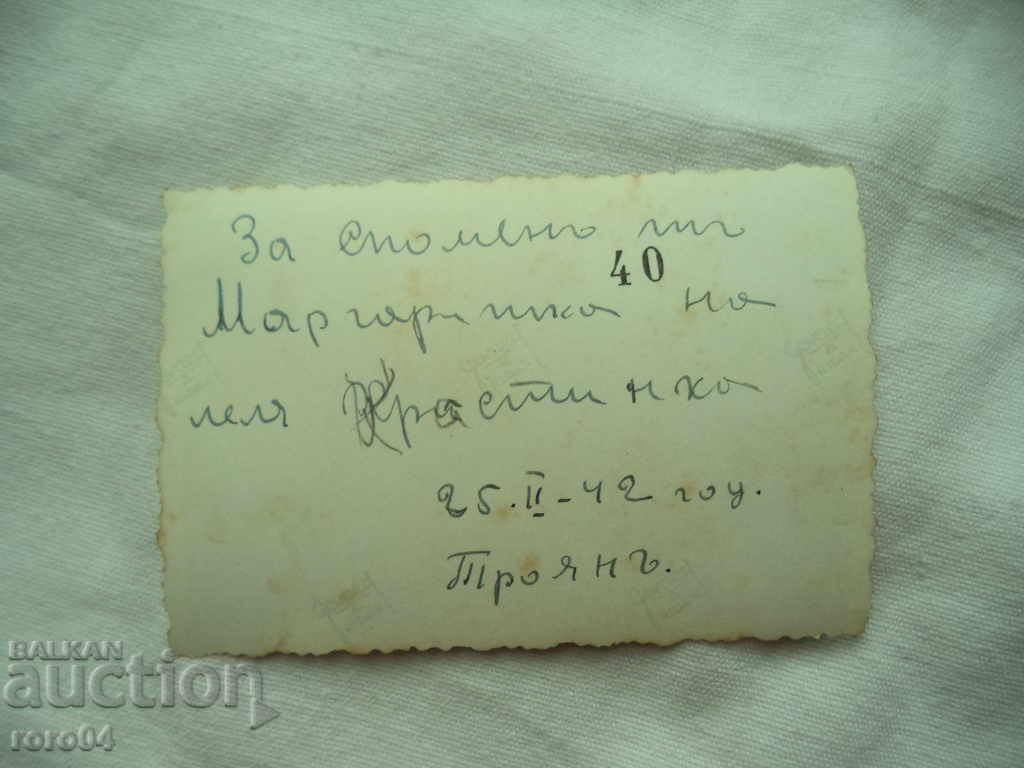 За споменъ тъ
40
Маргаритка на
леля Кръстинка
25.II-42 год.
Троянъ.
BALKAN
auction
roro04